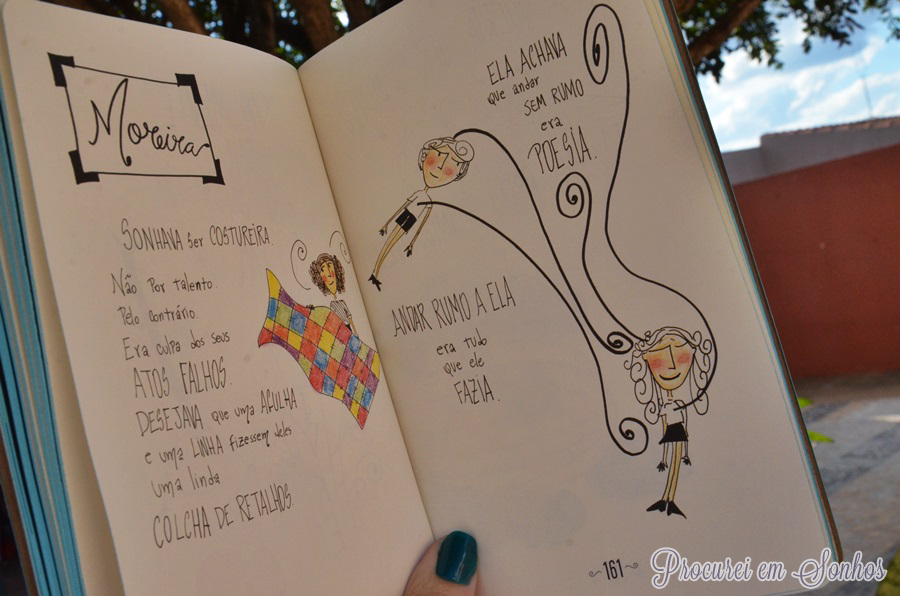 Moreira
SONHAVA ser COSTUREIRA.
Não Por talento.
Pelo contrário.
Era culpa dos seus
ATOS FALHOS.
DESEJAVA que uma AGULHA
e uma LINHA fizessem deles
uma linda
COLCHA DE RETALHOS
ELA ACHAVA
que andar
SEM RUMO
era
POESIA.
ANDAR RUMO A ELA
era tudo
que ele
FAZIA.
161
Procurei em Sonhos